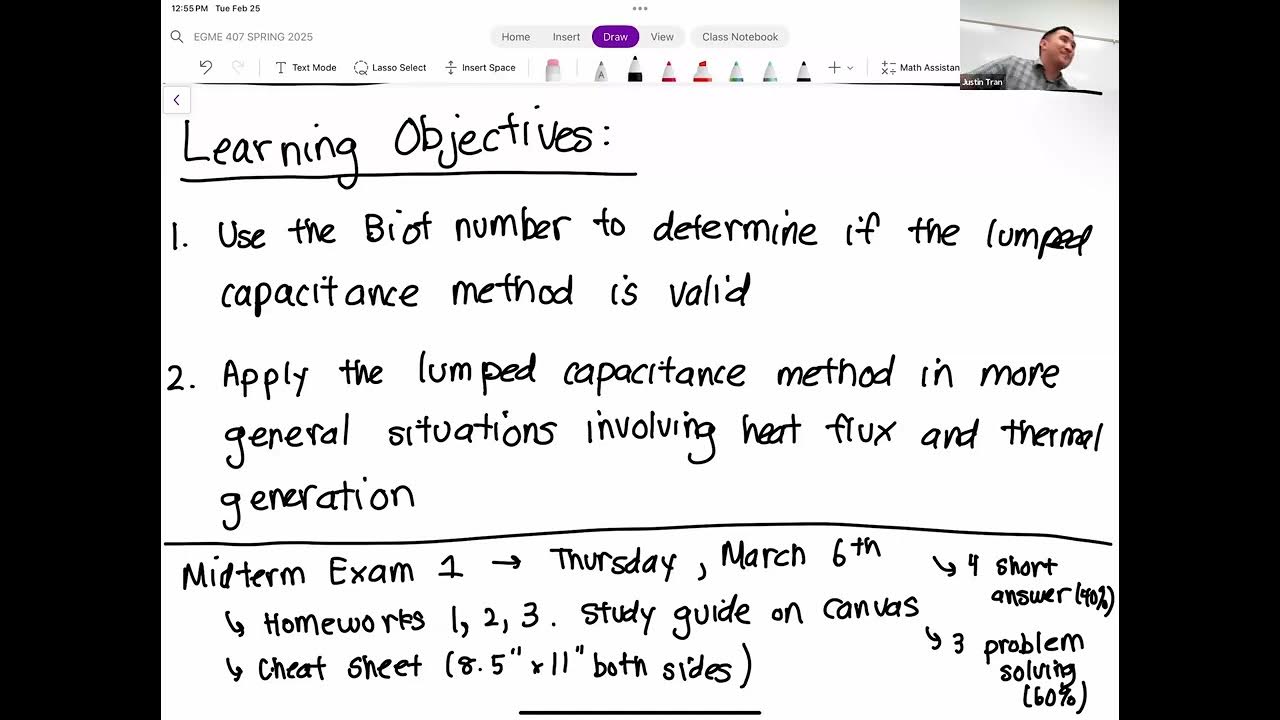 12:55 PM Tue Feb 25
EGME 407 SPRING 2025
Home Insert Draw View Class Notebook
Text Mode Lasso Select Insert Space Math Assistan
Justin Tran
Learning Objectives:
1. Use the Biot number to determine if the lumped
capacitance method is valid
2. Apply the lumped capacitance method in more
general situations involving heat flux and thermal
generation
Midterm Exam 1 → Thursday, March 6th
↳ Homeworks 1, 2, 3. Study guide on canvas
↳ Cheat Sheet (8.5" x 11" both sides)
↳ 4 short
answer (40%)
↳ 3 problem
solving
(60%)